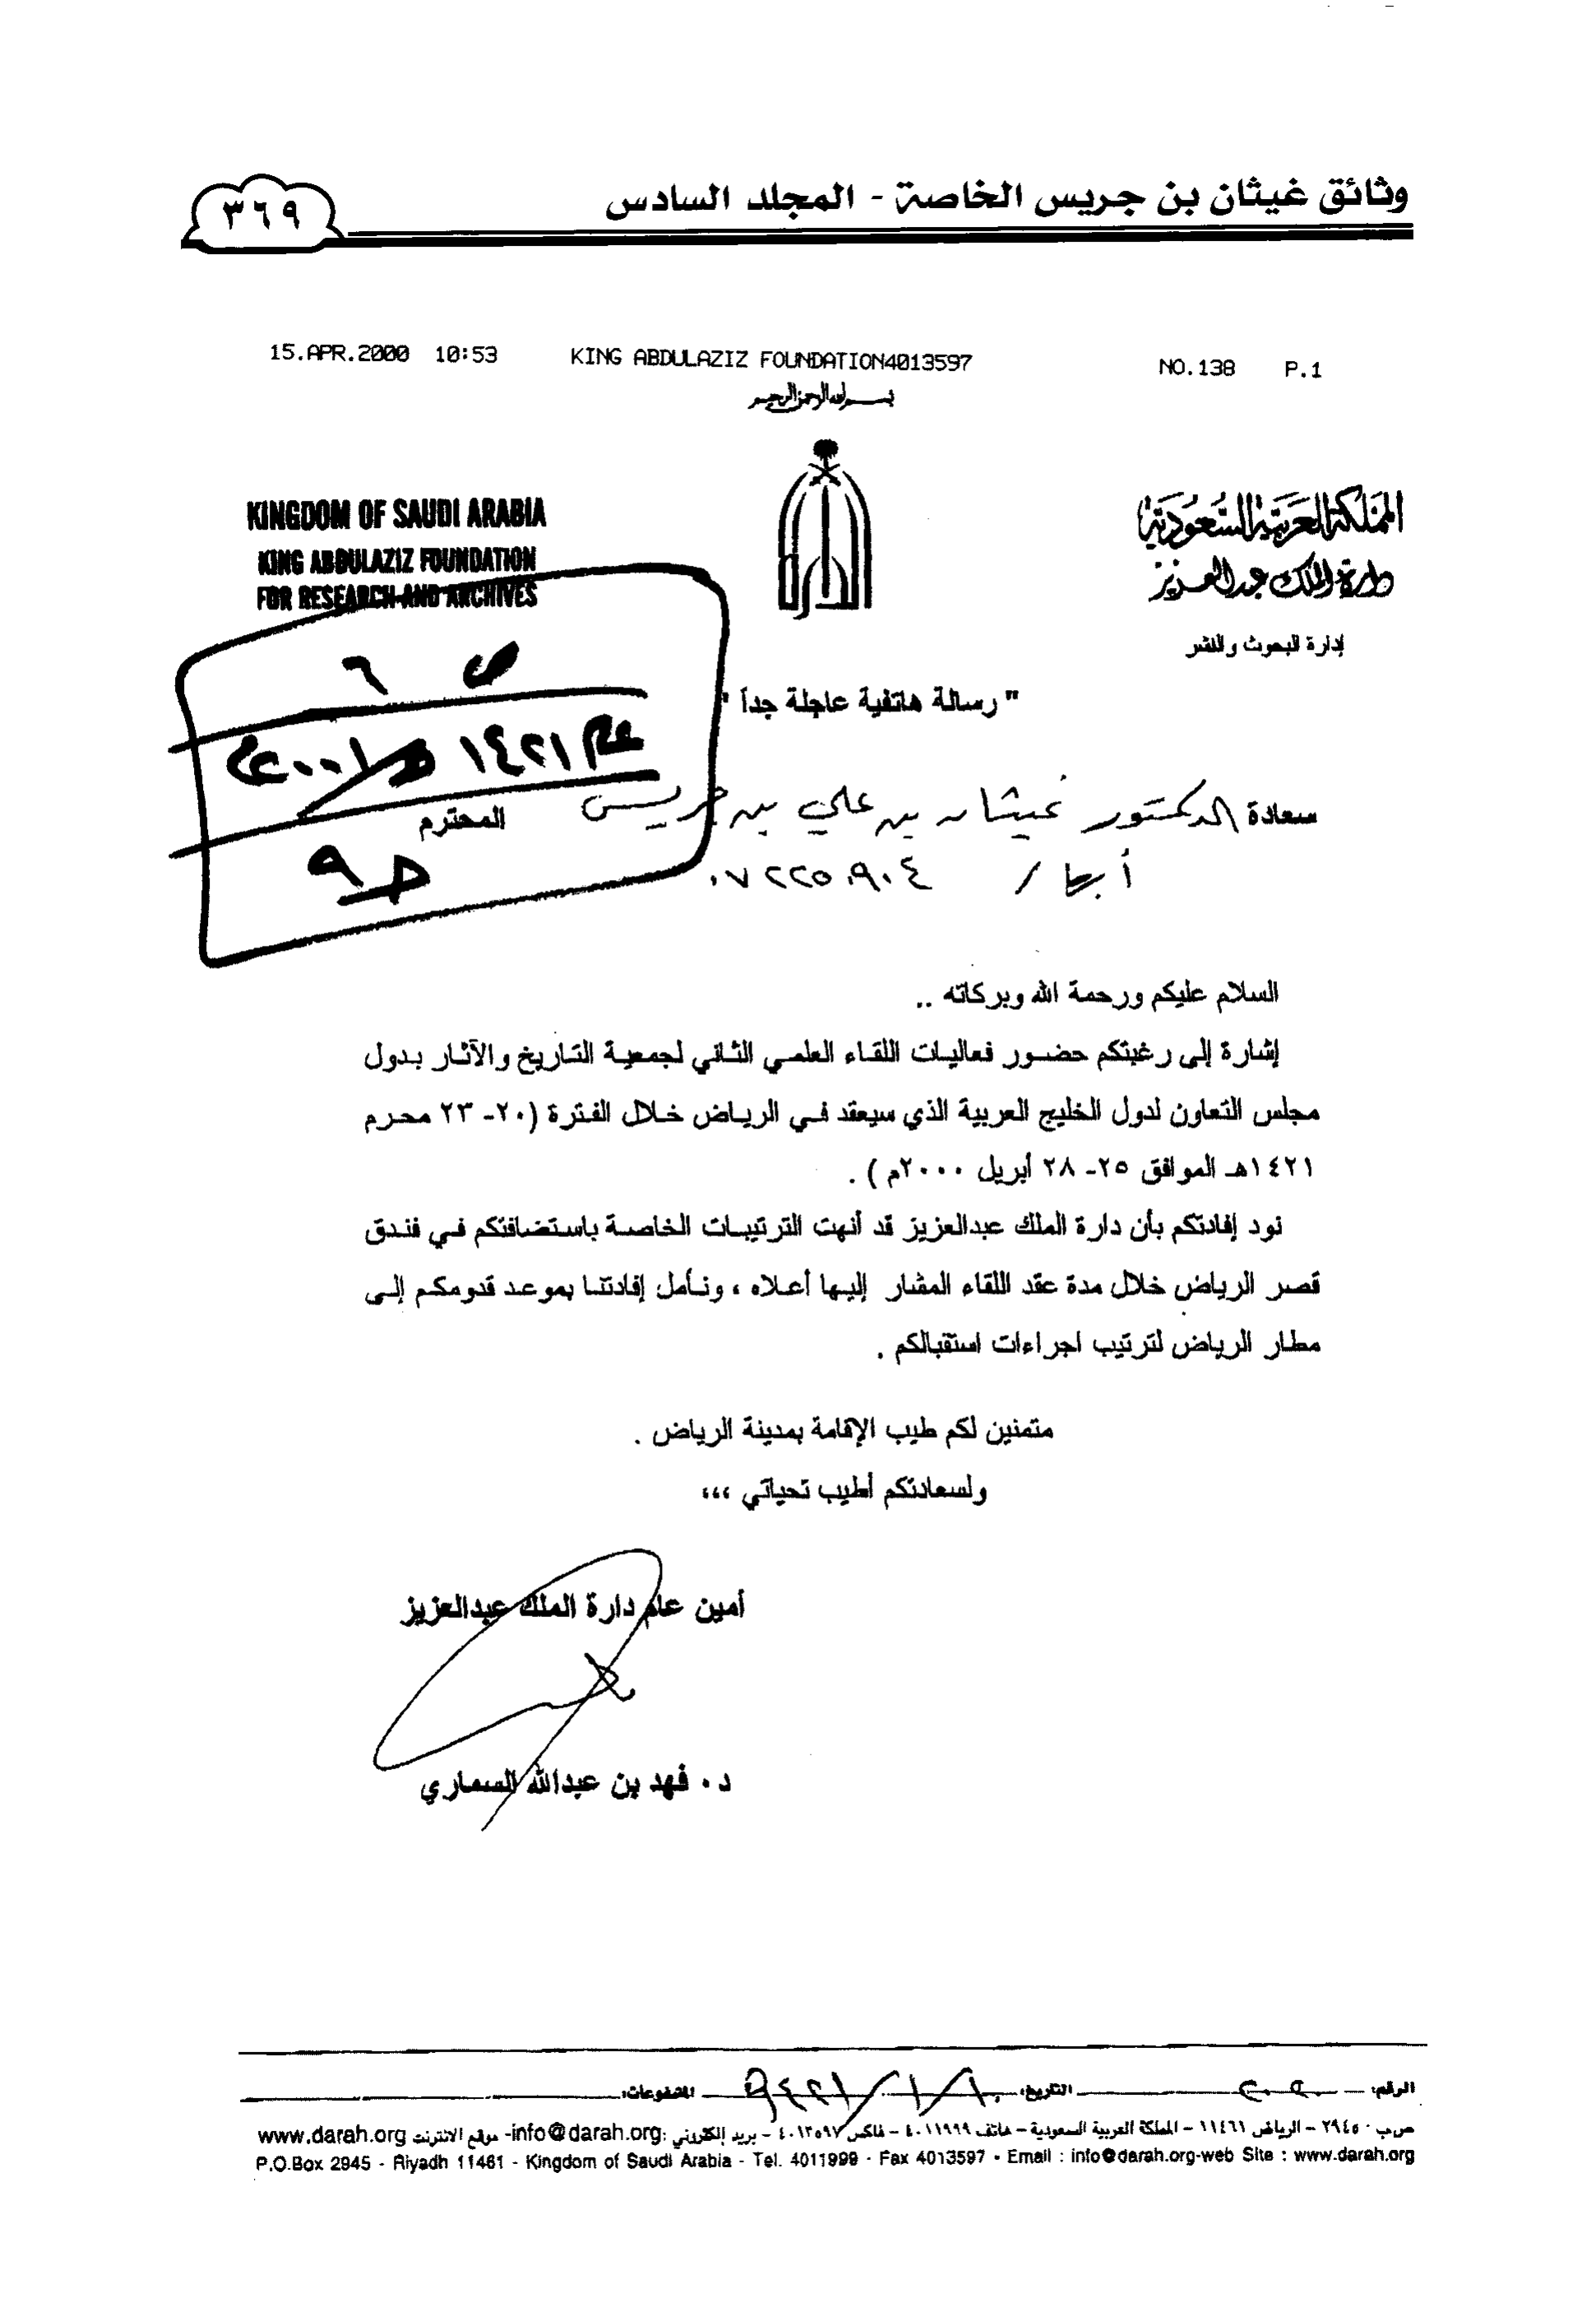 وثائق غيثان بن جريس الخاصة - المجلد السادس
٣٦٩
15.APR.2000 10:53 KING ABDULAZIZ FOUNDATION4013597 NO.138 P.1
بسم الله الرحمن الرحيم
المملكة العربية السعودية
دارة الملك عبدالعزيز
إدارة البحوث والنشر
KINGDOM OF SAUDI ARABIA
KING ABDULAZIZ FOUNDATION
FOR RESEARCH AND ARCHIVES
ص ٦
" رسالة هاتفية عاجلة جداً "
سعادة الدكتور غيثان بن علي بن جريس المحترم
أبها / ٠٧٢٢٥٠٩٠٤
السلام عليكم ورحمة الله وبركاته ..
إشارة إلى رغبتكم حضور فعاليات اللقاء العلمي الثاني لجمعية التاريخ والآثار بدول
مجلس التعاون لدول الخليج العربية الذي سيعقد في الرياض خلال الفترة (٢٠- ٢٣ محرم
١٤٢١هـ الموافق ٢٥- ٢٨ أبريل ٢٠٠٠م ) .
نود إفادتكم بأن دارة الملك عبدالعزيز قد أنهت الترتيبات الخاصة باستضافتكم في فندق
قصر الرياض خلال مدة عقد اللقاء المشار إليها أعلاه ، ونأمل إفادتنا بموعد قدومكم إلى
مطار الرياض لترتيب اجراءات استقبالكم .
متمنين لكم طيب الإقامة بمدينة الرياض .
ولسعادتكم أطيب تحياتي ،،،
أمين عام دارة الملك عبدالعزيز
د . فهد بن عبدالله السماري
الرقم: التاريخ: المشفوعات:
ص ب ٢٩٤٥ - الرياض ١١٤٦١ - المملكة العربية السعودية - هاتف ٤٠١١٩٩٩ - فاكس ٤٠١٣٥٩٧ - بريد إلكتروني :info@darah.org- موقع الانترنت www.darah.org
P.O.Box 2945 - Riyadh 11461 - Kingdom of Saudi Arabia - Tel. 4011999 - Fax 4013597 - Email : info@darah.org-web Site : www.darah.org